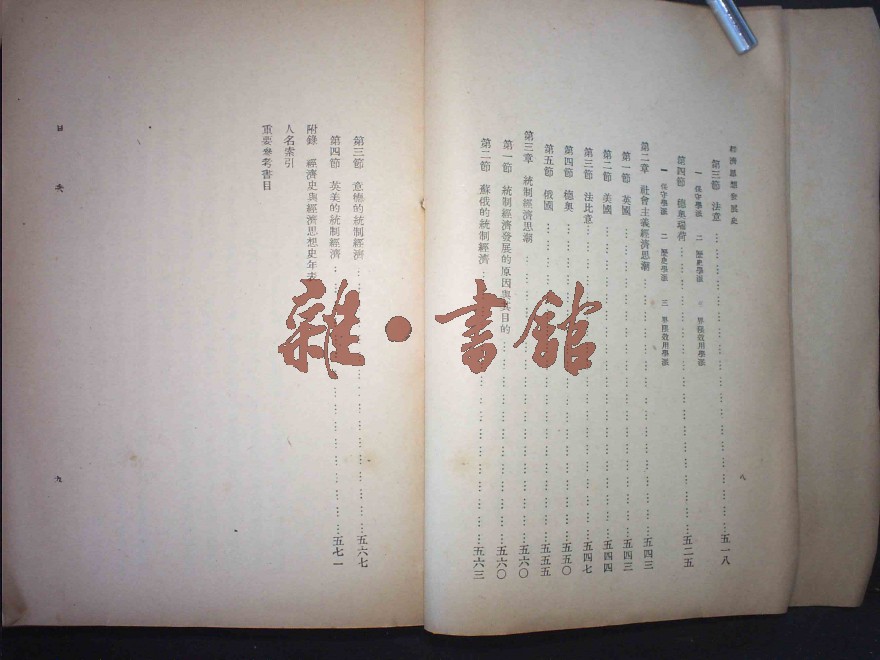 經濟思想發展史
第三節 法意……五一八
一 保守學派 二 歷史學派 三 界限效用學派
第四節 德奧瑞荷……五二五
一 保守學派 二 歷史學派 三 界限效用學派
第二章 社會主義經濟思潮……五四三
第一節 英國……五四三
第二節 美國……五四四
第三節 法比意……五四七
第四節 德奧……五五〇
第五節 俄國……五五五
第三章 統制經濟思潮……五六〇
第一節 統制經濟發展的原因與其目的……五六〇
第二節 蘇俄的統制經濟……五六三
八
第三節 意德的統制經濟……五六七
第四節 英美的統制經濟……五七一
附錄 經濟史與經濟思想史年表
人名索引
重要參考書目
目 次
九
雜·書館